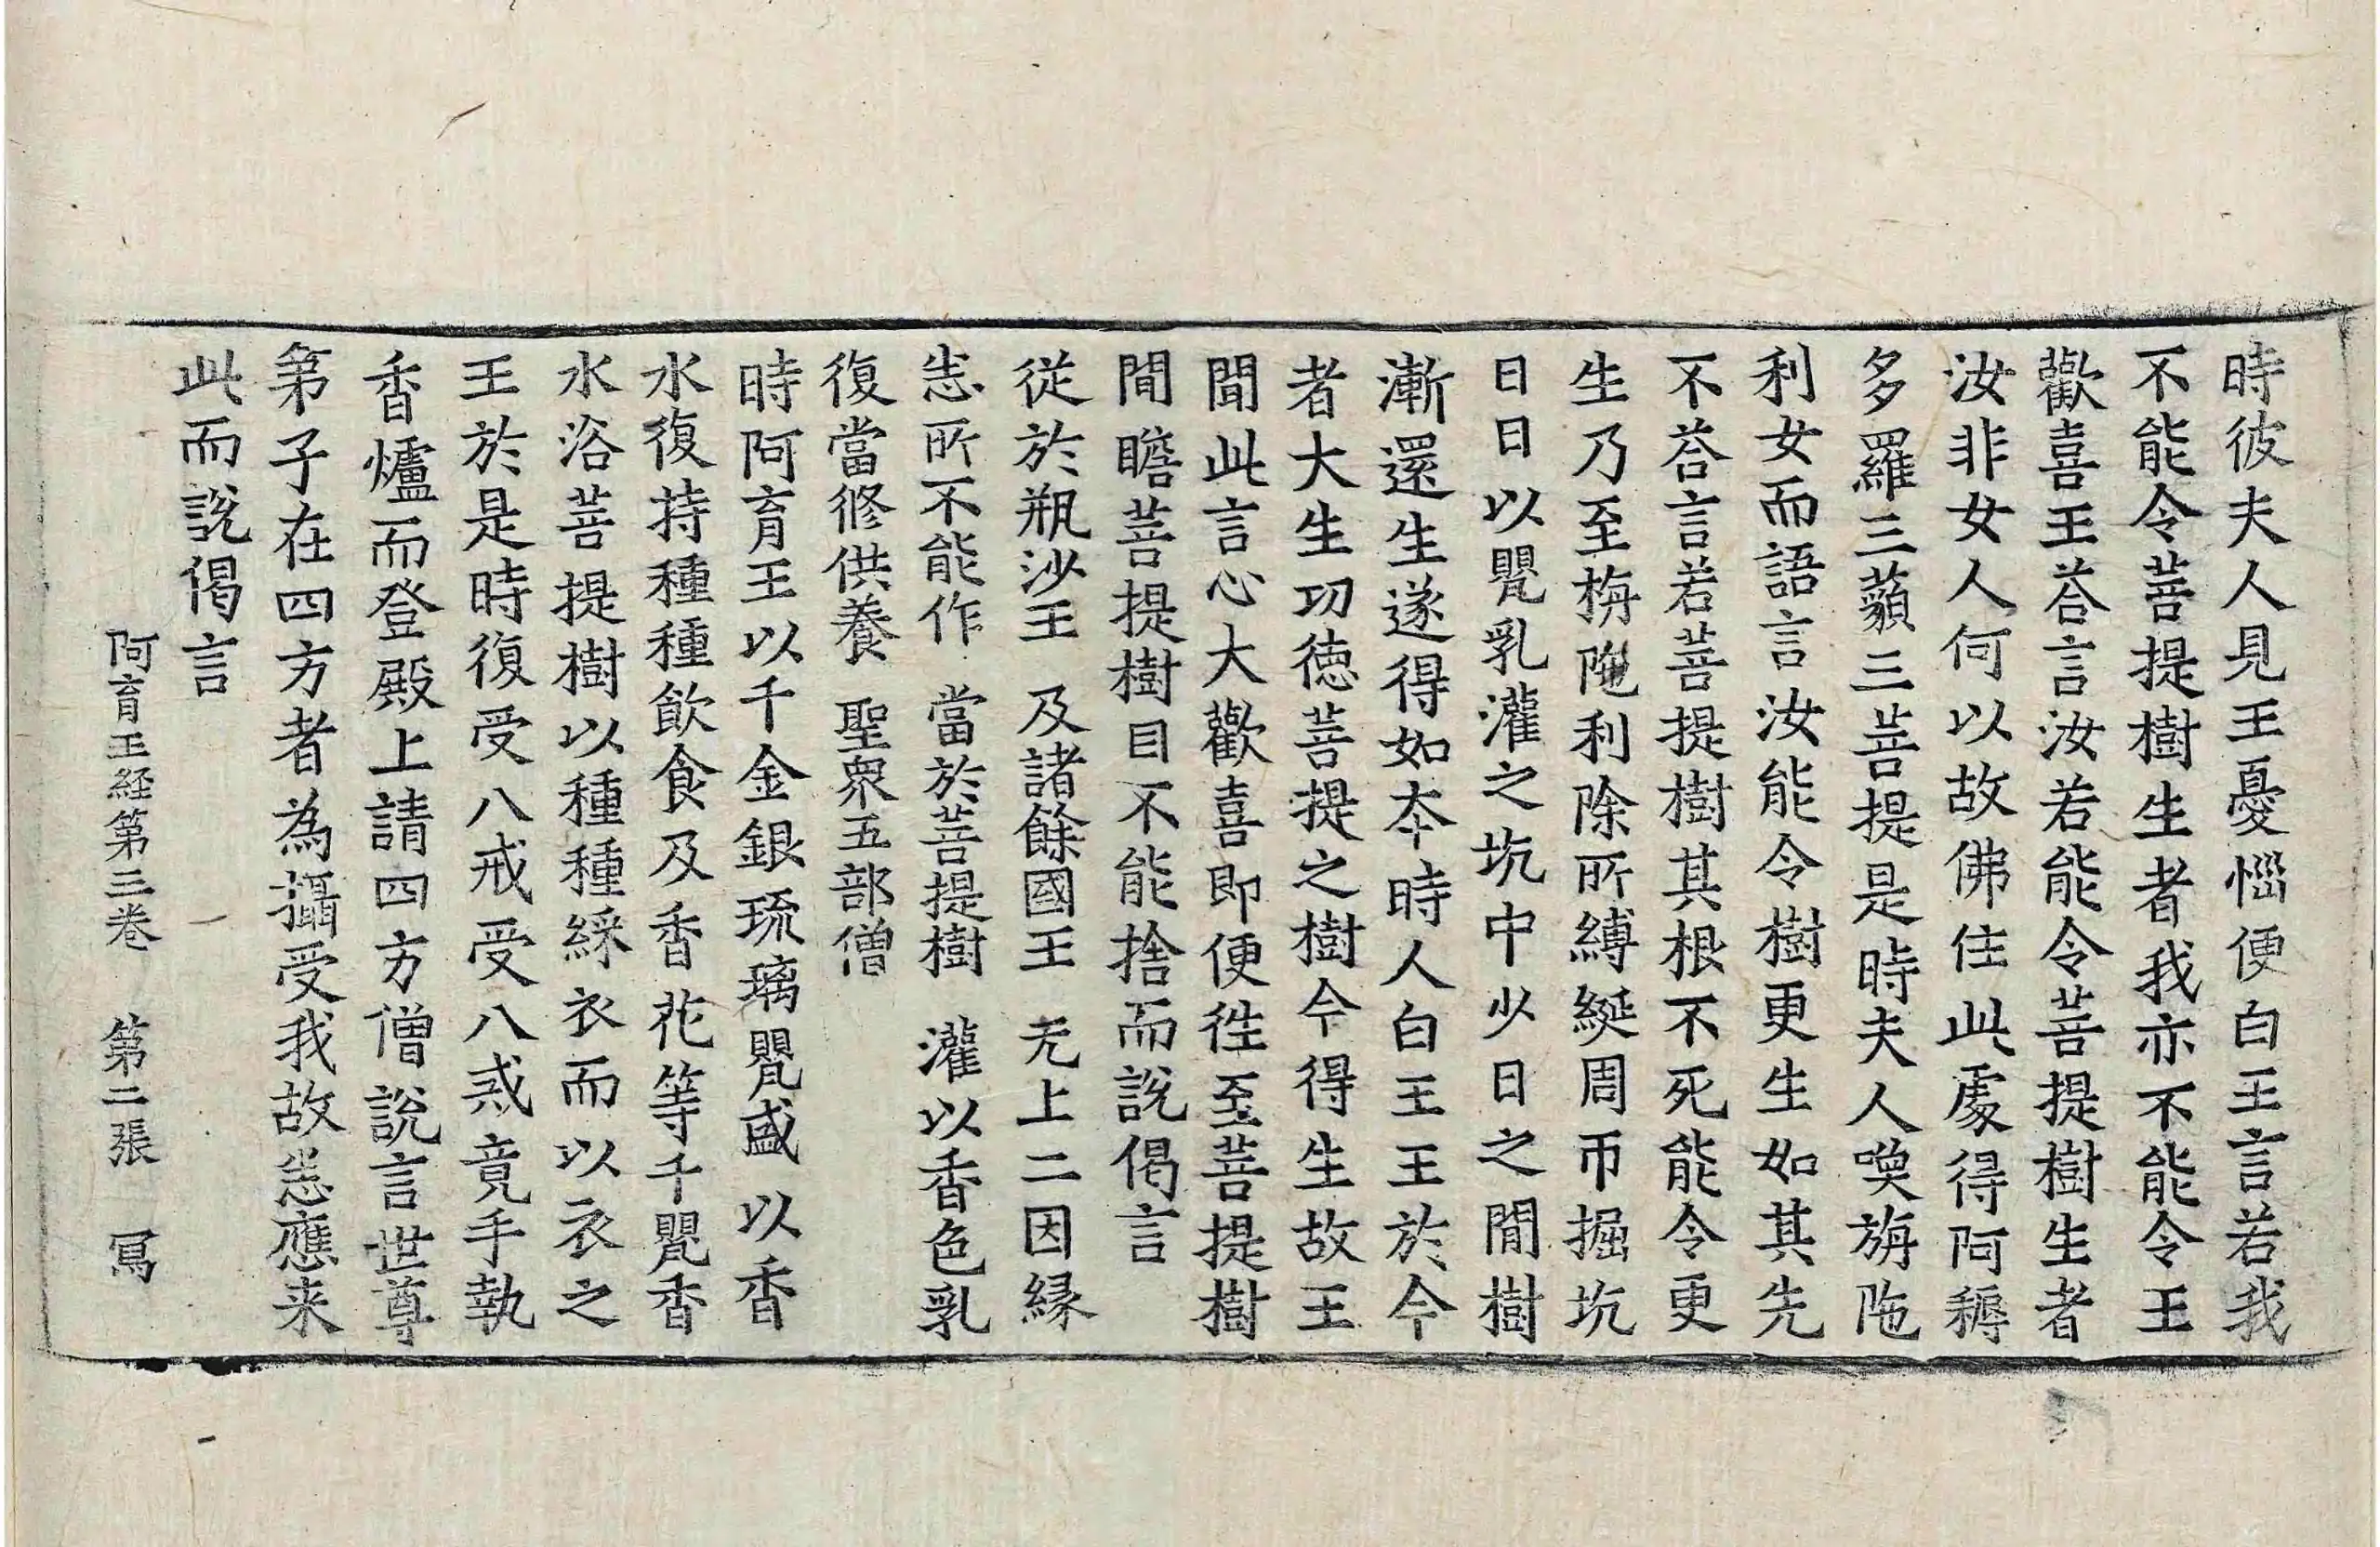 時彼夫人見王憂惱便白王言若我
不能令菩提樹生者我亦不能令王
歡喜王荅言汝若能令菩提樹生者
汝非女人何以故佛住此處得阿耨
多羅三藐三菩提是時夫人喚旃陁
利女而語言汝能令樹更生如其先
不荅言若菩提樹其根不死能令更
生乃至栴陁利除所縛綖周帀掘坑
日日以甖乳灌之坑中少日之閒樹
漸還生遂得如本時人白王王於今
者大生功德菩提之樹今得生故王
聞此言心大歡喜即便往至菩提樹
閒瞻菩提樹目不能捨而說偈言
從於瓶沙王　及諸餘國王　无上二因縁
㤙所不能作　當於菩提樹　灌以香色乳
復當修供養　聖衆五部僧
時阿育王以千金銀琉璃甖盛以香
水復持種種飲食及香花等千甖香
水浴菩提樹以種種綵衣而以衣之
王於是時復受八戒受八戒竟手執
香爐而登殿上請四方僧說言世尊
第子在四方者為攝受我故㤙應来
此而說偈言
阿育王経第三卷　第二張　冩